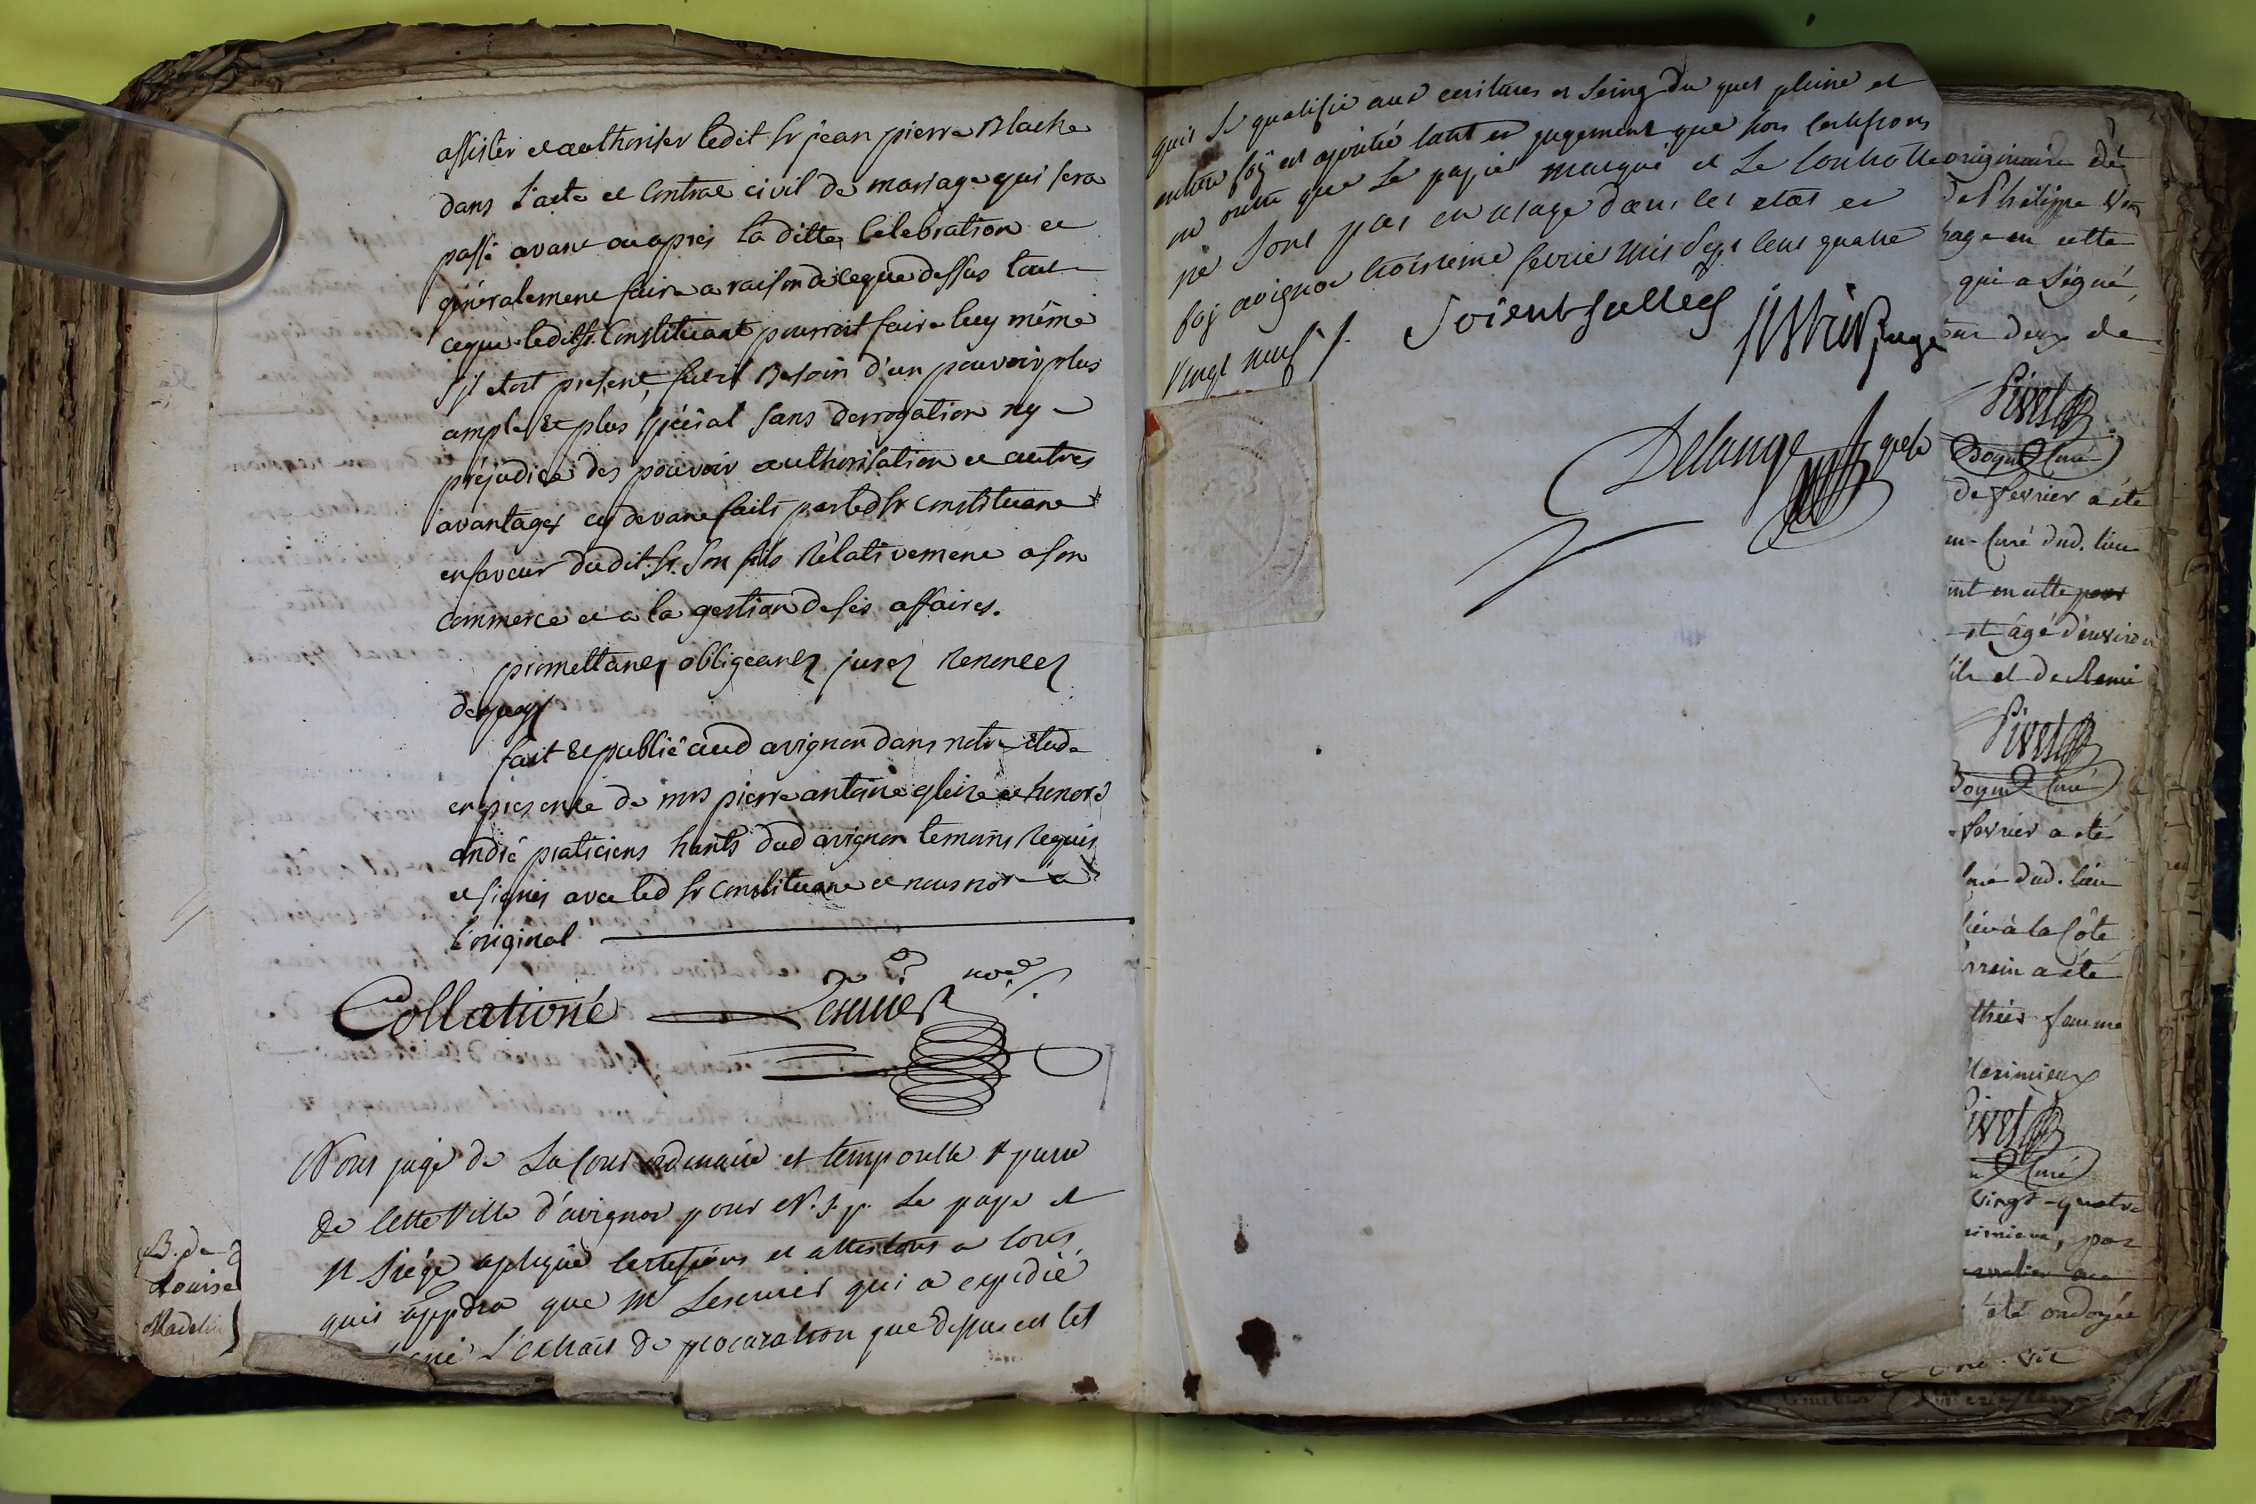 assister et authoriser ledit sr jean pierre Blache
dans l'acte et contrat civil de mariage qui sera
passé avant ou apres la ditte celebration et
généralement faire a raison de ce que dessus tout
ce que ledit sr. constituant pourroit faire luy même
s'il etoit present, fut il Besoin d'un pouvoir plus
ample & plus spécial sans derrogation ny
préjudice des pouvoir authorisation et autres
avantages cy devant faits par led sr constituant
en faveur dudit. sr. son fils Rélativement a son
commerce et a la gestion de ses affaires.
promettant obligeant jurez Renoncez
dequoy
fait & publié aud avignon dans notre etude
en presence de mrs pierre antoine gleize et honoré
andré praticiens habts dud avignon temoins Requis
et signés avec led sr constituant et nous nore a
l'original
Collationné Lescuier nore
Nous juge de La Cour ordinaire et temporelle st pierre
de cette Ville d'avignon pour N. S. p. Le pape et
st siége aplique certifions et attestons a tous
quis appdra que me Lescuier qui a expedié
signé L'extrait de procuration que dessus est tel
B. de
Louise
Madelei
quil se qualifie aux ecritures et seing du quel pleine et
entiere foy est ajoutée tant en jugement que hors certifions
en outre que Le papier marqué et Le controlle
ne sont pas en usage dans cet etat en
foy avignon troisieme fevrier mil sept cent quatre
vingt neuf ./.
Soient scellées juge
Delange greff
originaire de
de Philippe
en cette
qui a Signé,
deux de
Pivet
Boyut Curé
de fevrier a été
Curé dud. lieu
en cette
et âgé d'environ
et de
Pivet
Curé
fevrier a été
dud. lieu
à la Côte
a été
femme
Pivet
Curé
vingt-quatre
par
été ondoyée